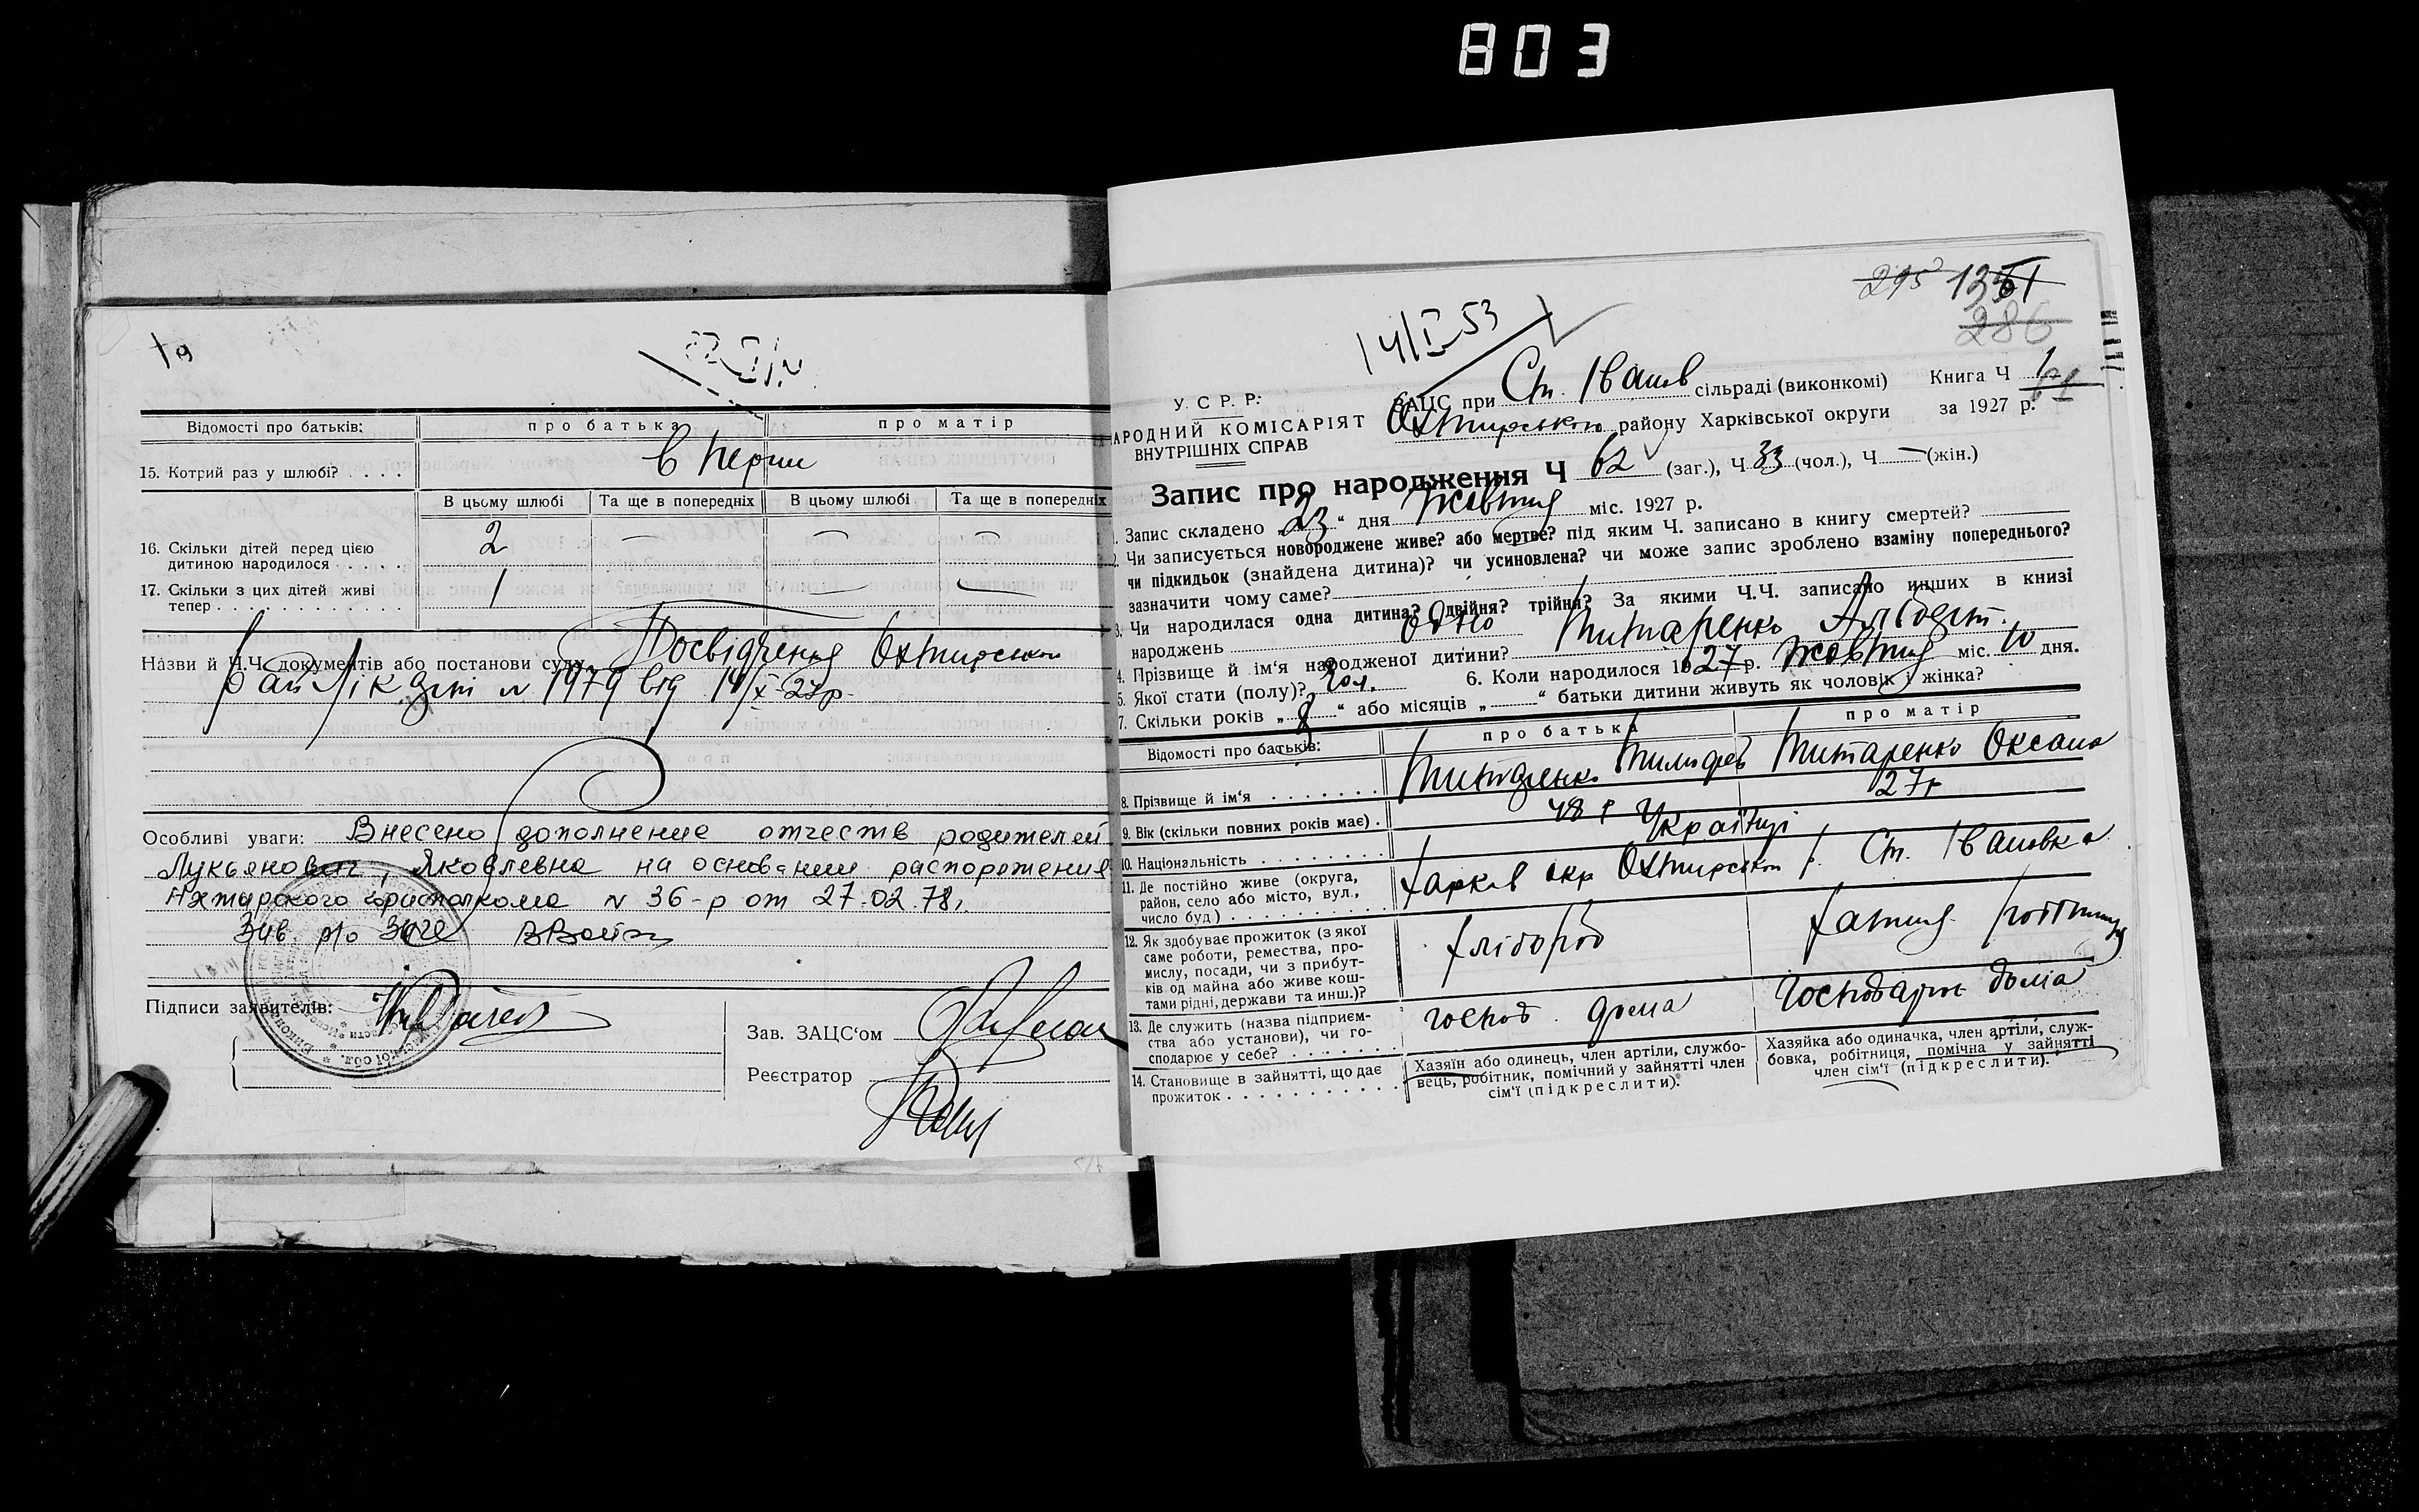 803
Відомості про батьків:
про батька
про матір
15. Котрий раз у шлюбі? . . . .
в перш
В цьому шлюбі
Та ще в попередніх
В цьому шлюбі
Та ще в попередніх
16. Скільки дітей перед цією
дитиною народилося . . . . .
2 — — —
17. Скільки з цих дітей живі
тепер . . . . . . . . . . . .
1 — — —
Назви й Ч.Ч. документів або постанови суду
Посвідчення Охтирської
Рай № 1979 від 14/X-27р.
Особливі уваги: Внесено дополнение отчеств родителей
Лукьянович, Яковлевна на основании распоряжения
Ахтырского горисполкома N 36-р от 27.02.78г.
Зав. р/о Загс
Підписи заявителів:
Зав. ЗАЦС'ом
Реєстратор
295 1351
286
14/I-53
У. С. Р. Р.
НАРОДНИЙ КОМІСАРІЯТ
ВНУТРІШНІХ СПРАВ
ЗАЦС при Ст. Іванів сільраді (виконкомі)
Книга Ч 1
Охтирського району Харківської округи
за 1927 р.
Запис про народження Ч 62 (заг.), Ч 33 (чол.), Ч — (жін.)
1. Запис складено „23“ дня Жовтня міс. 1927 р.
2. Чи записується новороджене живе? або мертве? під яким Ч. записано в книгу смертей?
чи підкидьок (знайдена дитина)? чи усиновлена? чи може запис зроблено взаміну попереднього?
зазначити чому саме?
3. Чи народилася одна дитина? двійня? трійня? За якими Ч.Ч. записано инших в книзі
народжень одно
4. Прізвище й ім'я народженої дитини? Титаренко Альберт.
5. Якої стати (полу)? Чол. 6. Коли народилося 1927 р. Жовтня міс. 10 дня.
7. Скільки років „8“ або місяців „ “ батьки дитини живуть як чоловік і жінка?
Відомості про батьків:
про батька
про матір
8. Прізвище й ім'я . . . . . . .
Титаренко Тимофей
Титаренко Оксана
9. Вік (скільки повних років має) .
48 р
27р
10. Національність . . . . . . . .
Українці
11. Де постійно живе (округа,
район, село або місто, вул.,
число буд.) . . . . . . . . . .
Харків окр Охтирськой р. Ст. Івановка
12. Як здобуває прожиток (з якої
саме роботи, ремества, про-
мислу, посади, чи з прибут-
ків од майна або живе кош-
тами рідні, держави та инш.)?
хлібороб
хатня
13. Де служить (назва підприєм-
ства або установи), чи го-
сподарює у себе? . . . . . . .
господ. дома
господарює дома
14. Становище в зайнятті, що дає
прожиток . . . . . . . . . . .
Хазяїн або одинець, член артіли, службо-
вець, робітник, помічний у зайнятті член
сім'ї (підкреслити).
Хазяйка або одиначка, член артіли, служ-
бовка, робітниця, помічна у зайнятті
член сім'ї (підкреслити).